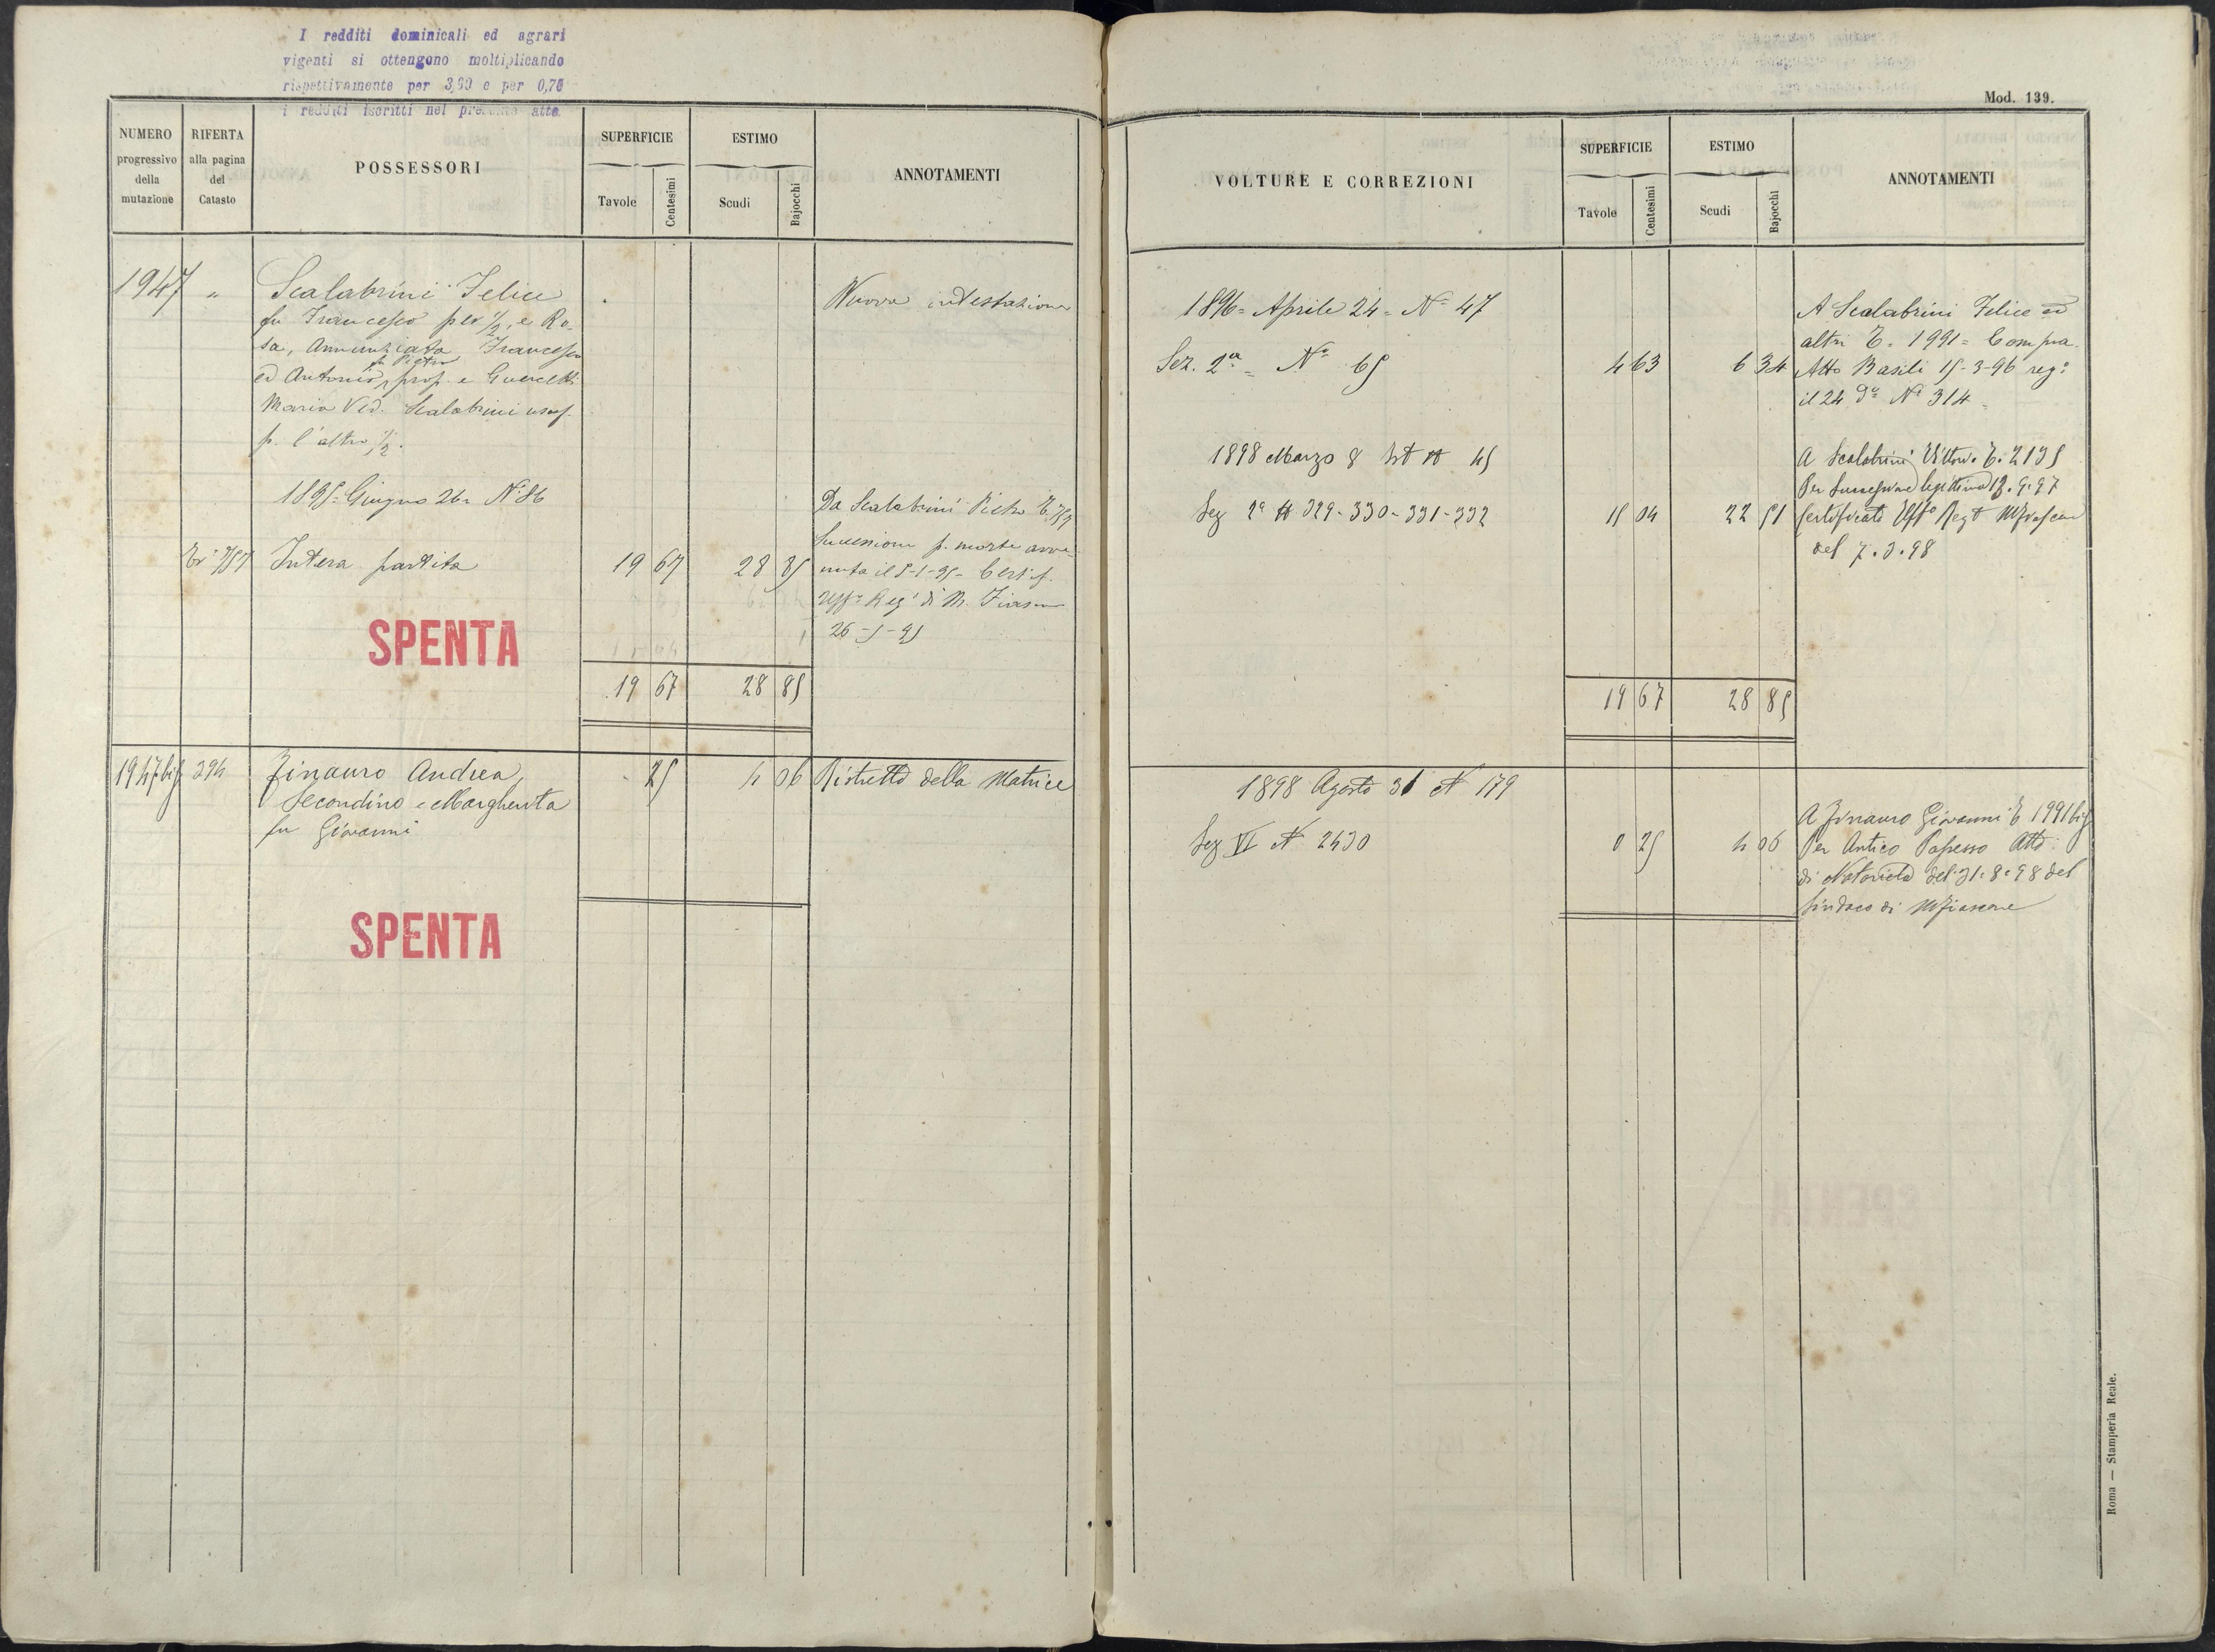 I redditi dominicali ed agrari
vigenti si ottengono moltiplicando
rispettivamente per 3,60 e per 0,75
i redditi iscritti nel presente atto
NUMERO
progressivo
della
mutazione
RIFERTA
alla pagina
del
Catasto
POSSESSORI
SUPERFICIE
Tavole
Centesimi
ESTIMO
Scudi
Bajocchi
ANNOTAMENTI
1947 "
Scalabrini Felice
fu Francesco per 1/2, e Ro-
sa, Annunziata Francesco
fu Pietro
ed Antonio, prop. e Guercetti
Maria Ved. Scalabrini usuf.
p. l'altro 1/2.
Nuova intestazione
1895 = Giugno 26 = N° 86
Intera partita
19 67 28 85
Da Scalabrini Pietro
Successione p. morte avve-
nuta il 5-1-95 - Certif.
Uff° Reg° di M. Fiascone
26-5-95
SPENTA
19 67 28 85
1947 bis 394
Zinauro Andrea,
Secondino e Margherita
fu Giovanni
25 4 06
Ristretto della Matrice
SPENTA
Mod. 139.
VOLTURE E CORREZIONI
SUPERFICIE
Tavole
Centesimi
ESTIMO
Scudi
Bajocchi
ANNOTAMENTI
1896 = Aprile 24 = N° 47
Sez. 2ª = N° 65
4 63 6 34
A Scalabrini Felice ed
altri T. 1991 = Compra
Atto Basili 15-3-96 reg°
il 24 d° N° 314 =
1898 Marzo 8 N 45
Sez 2ª N 329-330-331-332
15 04 22 51
A Scalabrini Vittori. T. 2135
Per Successione legittima 12.9.97
Certificato Uff° Regt Mfiascone
del 7.3.98
19 67 28 85
1898 Agosto 31 N 179
Sez VI N 2430
0 25 4 06
A Zinauro Giovanni T 1991 bis
Per Antico Possesso Atto
di Notorietà del 31.8.98 del
Sindaco di Mfiascone
Roma — Stamperia Reale.